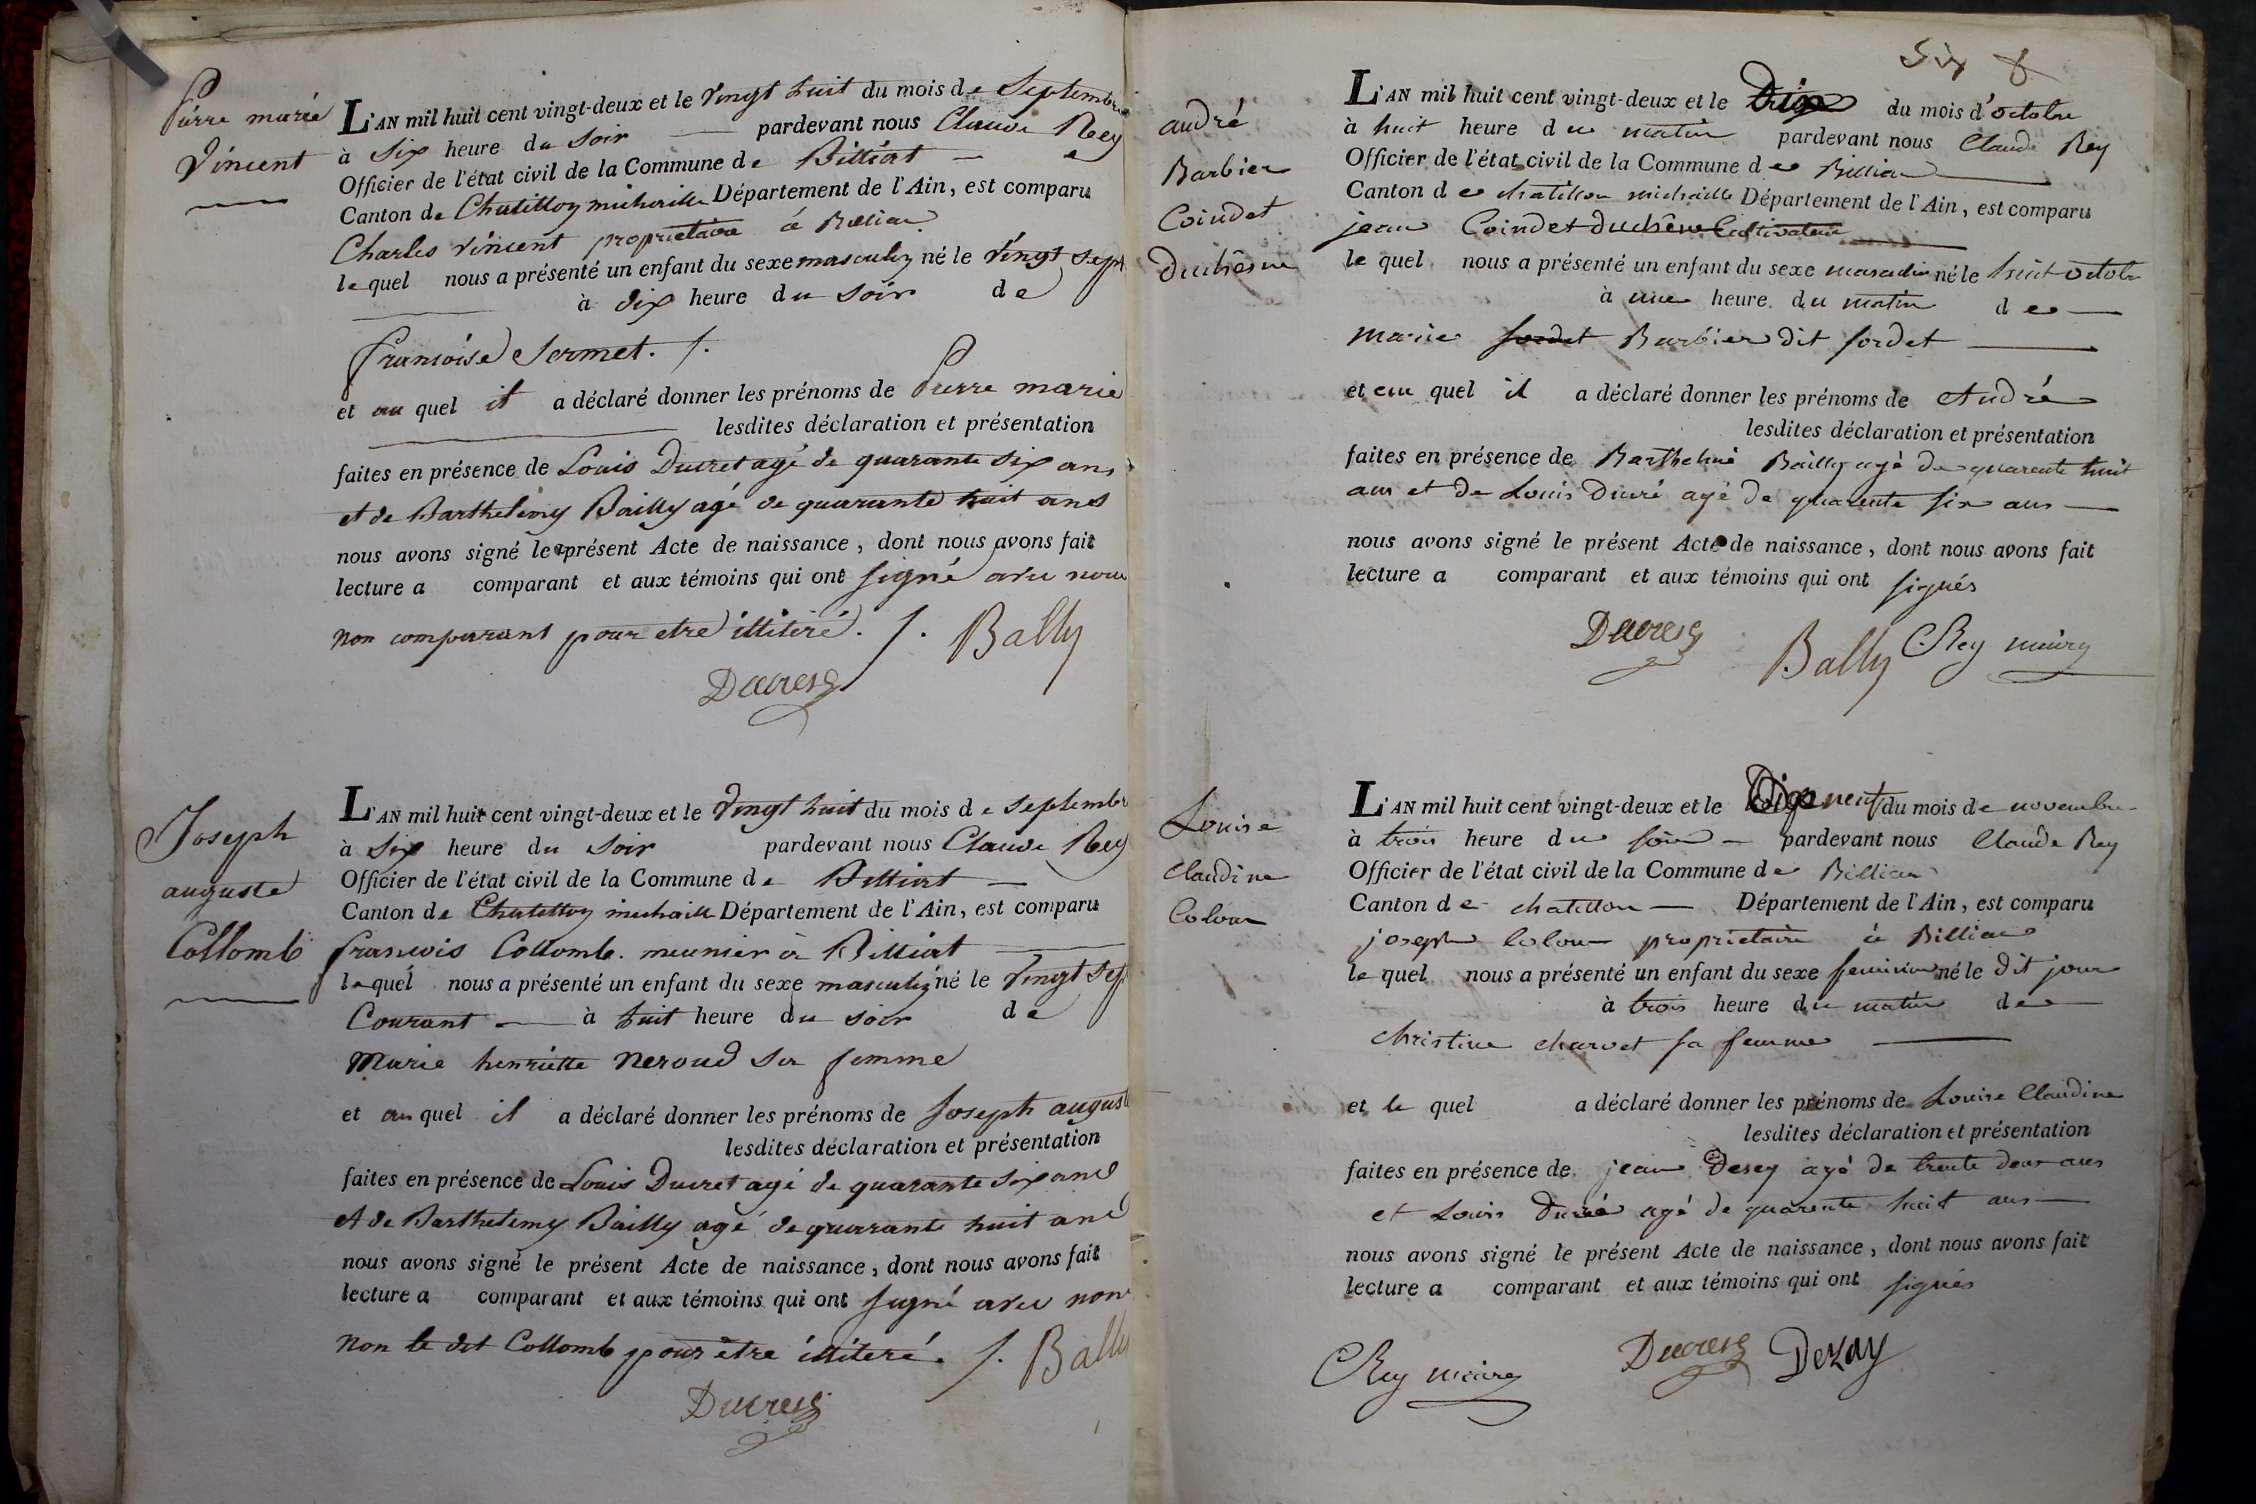 Pierre marie
Vincent
L'AN mil huit cent vingt-deux et le vingt huit du mois de Septembre
à Six heure du Soir pardevant nous Claude Rey
Officier de l'état civil de la Commune de Billiat
Canton de Chatillon michaille Département de l'Ain, est comparu
Charles Vincent proprietaire à Billiat
le quel nous a présenté un enfant du sexe masculin né le vingt sept
à dix heure du soir de
françoise Sermet. /.
et au quel il a déclaré donner les prénoms de Pierre marie
lesdites déclaration et présentation
faites en présence de Louis Ducret agé de quarante Six ans
et de Barthelemy Bailly agé de quarante huit ans
nous avons signé le présent Acte de naissance, dont nous avons fait
lecture a comparant et aux témoins qui ont signé avec nous
non comparant pour etre illiteré. /. Bally
Ducres
Joseph
auguste
Collomb
L'AN mil huit cent vingt-deux et le vingt huit du mois de Septembre
à Six heure du Soir pardevant nous Claude Rey
Officier de l'état civil de la Commune de Billiat
Canton de Chatillon michaille Département de l'Ain, est comparu
francois Collomb. meunier à Billiat
le quel nous a présenté un enfant du sexe masculin né le vingt sep
Courant à huit heure du soir de
Marie henriette Neroud sa femme
et au quel il a déclaré donner les prénoms de Joseph august
lesdites déclaration et présentation
faites en présence de Louis Ducret agé de quarante Six ans
et de Barthelemy Bailly agé de quarante huit ans
nous avons signé le présent Acte de naissance, dont nous avons fait
lecture a comparant et aux témoins qui ont signé avec nous
Non le dit Collomb pour être illiteré. /. Bally
Ducres
Six
andré
Barbier
Coindet
Duchêsne
L'AN mil huit cent vingt-deux et le du mois d'octobre
à huit heure du matin pardevant nous Claude Rey
Officier de l'état civil de la Commune de Billiat
Canton de chatillon michaille Département de l'Ain, est comparu
jean Coindet duchêne Cultivateur
le quel nous a présenté un enfant du sexe masculin né le huit octobre
à une heure du matin de
marie sordet Barbier dit sordet
et au quel il a déclaré donner les prénoms de André
lesdites déclaration et présentation
faites en présence de Barthelmi Bailly agé de quarente huit
ans et de Louis Ducré agé de quarente six ans
nous avons signé le présent Acte de naissance, dont nous avons fait
lecture a comparant et aux témoins qui ont signés
Ducres Bally Rey maire
Louise
claudine
Colom
L'AN mil huit cent vingt-deux et le Dixneuf du mois de novembre
à trois heure du soir pardevant nous Claude Rey
Officier de l'état civil de la Commune de Billiat
Canton de chatillon Département de l'Ain, est comparu
joseph Colom proprietaire à Billiat
le quel nous a présenté un enfant du sexe feminin né le dit jour
à trois heure du matin de
christine charvet sa femme
et le quel a déclaré donner les prénoms de Louise Claudine
lesdites déclaration et présentation
faites en présence de jean Desey agé de trente deux ans
et Louis Ducré agé de quarente huit ans
nous avons signé le présent Acte de naissance, dont nous avons fait
lecture a comparant et aux témoins qui ont signés
Rey maire Ducres Dezay